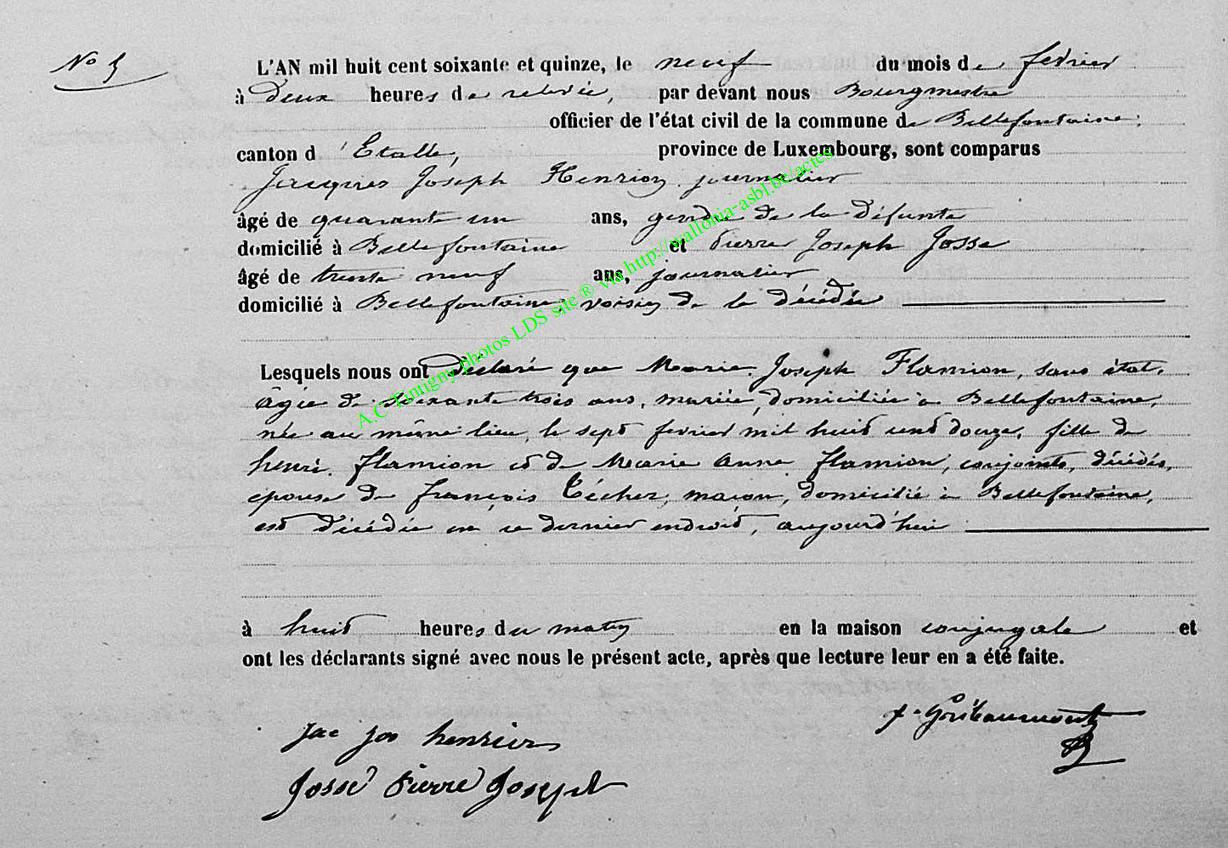 No 5
L'AN mil huit cent soixante et quinze, le neuf du mois de février
à deux heures de relevée, par devant nous Bourgmestre
officier de l'état civil de la commune de Bellefontaine,
canton d'Etalle, province de Luxembourg, sont comparus
Jacques Joseph Henrion, journalier
âgé de quarante un ans, gendre de la défunte
domicilié à Bellefontaine et Pierre Joseph Josse
âgé de trente neuf ans, journalier
domicilié à Bellefontaine, voisin de la décédée
Lesquels nous ont déclaré que Marie Joseph Flamion, sans état,
âgée de soixante trois ans, mariée, domiciliée à Bellefontaine,
née au même lieu, le sept fevrier mil huit cent douze, fille de
henri Flamion et de Marie Anne Flamion, conjoints, décédés,
épouse de françois Técher, maçon, domicilié à Bellefontaine,
est décédée en ce dernier endroit, aujourd'hui
à huit heures du matin en la maison conjugale et
ont les déclarants signé avec nous le présent acte, après que lecture leur en a été faite.
Jac Jos henrion
Josse Pierre Joseph
A.C Tintigny photos LDS site ® via http://wallonia-asbl.be/actes